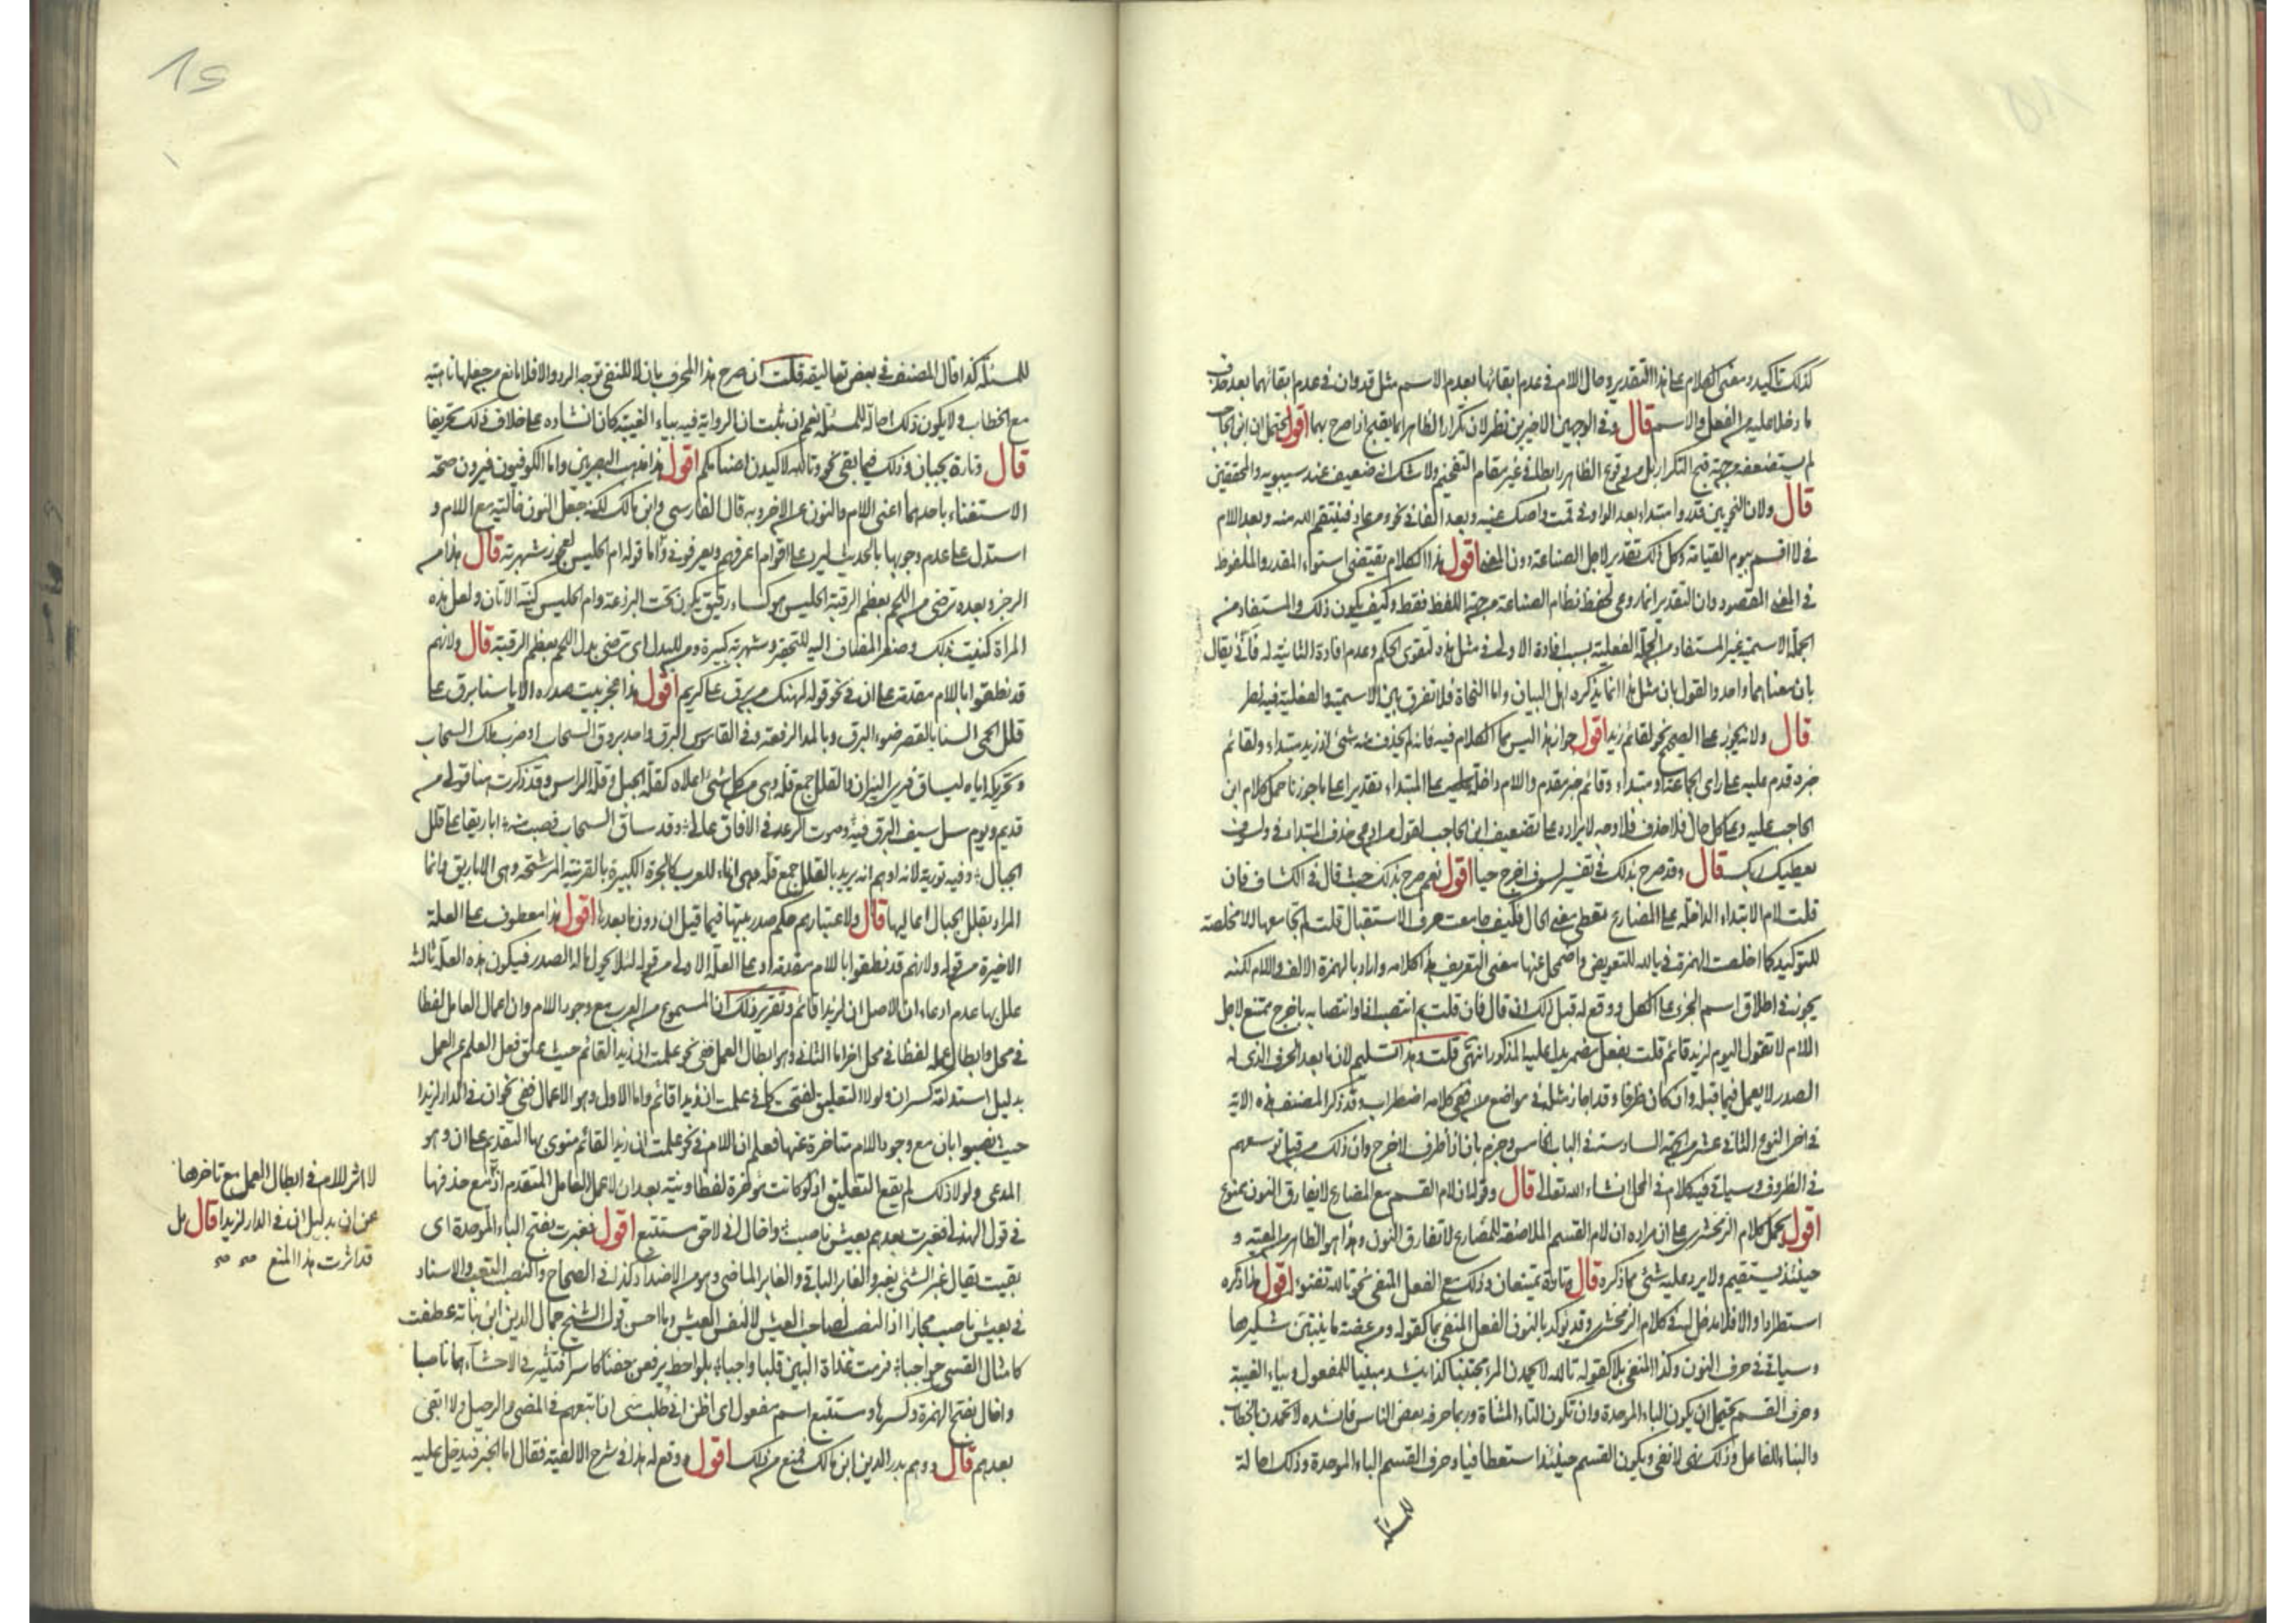 كذلك تاكيد ومعنى الكلام على هذا التقدير وحال اللام في عدم ابقائها بعدم الاسم مثل قد وان في عدم ابقائهما بعد حذف
ما دخلا عليه من الفعل والاسم قال وفي الوجهين الاخيرين نظر لان تكرار الظاهر انما يقبح اذا صرح بهما اقول يحتمل ان ابن الحاجب
لم يستضعفه من جهة قبح التكرار بل من وقوع الظاهر رابطا في غير مقام التفخيم ولا شك انه ضعيف عند سيبويه والمحققين
قال ولان النحويين قدروا مبتداء بعد الواو في قمت واصك عينه وبعد الفا في نحو ومن عاد فينتقم الله منه وبعد اللام
في لا اقسم بيوم القيامة وكل ذلك تقدير لاجل الصناعة دون المعنى اقول هذا الكلام يقتضي استواء المقدر والملفوظ
في المعنى المقصود وان التقدير انما روعي لحفظ نظام الصناعة من جهة اللفظ فقط وكيف يكون ذلك والمستفاد من
الجملة الاسمية غير المستفاد من الجملة الفعلية بسبب افادة الاولى في مثل هذه لتقوى الحكم وعدم افادة الثانية له فأنى يقال
بان معناهما واحد والقول بان مثل هذا انما يذكره اهل البيان واما النحاة فلا تفرق بين الاسمية والفعلية فيه نظر
قال ولانه يجوز على الصحيح نحو لقائم زيد اقول جواز هذا ليس مما الكلام فيه فانه لم يحذف منه شئ اذ زيد مبتداء ولقائم
خبره قدم عليه على راى الجماعة او مبتداء وقائم خبر مقدم واللام داخلة على المبتداء تقديرا على ما جوزنا حمل كلام ابن
الحاجب عليه وعلى كل حال فلا حذف فلا وجه لايراده على تضعيف ابن الحاجب لقول من ادعى حذف المبتدا في ولسوف
يعطيك ربك قال وقد صرح بذلك في تفسير لسوف اخرج حيا اقول نعم صرح بذلك حيث قال في الكشاف فان
قلت لام الابتداء الداخلة على المضارع تعطي معنى الحال فكيف جامعت حرف الاستقبال قلت لم تجامعها الا مخلصة
للتوكيد كما اخلصت الهمزة في يا الله للتعويض واضمحل عنها معنى التعريف هذا كلامه واراد بالهمزة الالف واللام لكنه
تجوز في اطلاق اسم الجزء على الكل ووقع له قبل ذلك انه قال فان قلت بم انتصب اذا وانتصابه باخرج ممتنع لاجل
اللام لا تقول اليوم لزيد قائم قلت بفعل مضمر يدل عليه المذكور انتهى قلت وهذا تسليم لان ما بعد الحرف الذي له
الصدر لا يعمل فيما قبله وان كان ظرفا وقد اجاز مثله في مواضع من ففي كلامه اضطراب وقد ذكر المصنف هذه الاية
في اخر النوع الثاني عشر من الجهة السادسة في الباب الخامس وجزم بان اذا ظرف لاخرج وان ذلك من قبل توسعهم
في الظروف وسياتي فيه كلام في المحل ان شاء الله تعالى قال وقوله ان لام القسم مع المضارع لا يفارق النون ممنوع
اقول يحمل كلام الزمخشري على ان مراده ان لام القسم الملاصقة للمضارع لا تفارق النون وهذا هو الظاهر من المعية و
حينئذ يستقيم ولا يرد عليه شئ مما ذكره قال وتارة يمتنعان وذلك مع الفعل المنفي نحو تالله تفتؤ اقول هذا ذكره
استطرادا والا فلا مدخل له في كلام الزمخشري وقد يؤكد بالنون الفعل المنفي بما كقوله ومن عضة ما ينبتن شكيرها
وسياتي في حرف النون وكذا المنفي بلا كقوله تالله لا يحمدن المرء مجتنبا كذا ينشد مبنيا للمفعول وبياء الغيبة
وحرف القسم يحتمل ان يكون الباء الموحدة وان تكون التاء المثناة وربما حرفه بعض الناس فانشده لا تحمدن بالخطاب
والبناء للفاعل وذلك نهى لا نفي ويكون القسم حينئذ استعطافيا وحرف القسم الباء الموحدة وذلك احالة
للمسئلة
للمسئلة كذا قال المصنف في بعض تعاليقه قلت ان صرح هذا المحرف بان لا للنفي توجه الرد والا فلا مانع من جعلها ناهية
مع الخطاب ولا يكون ذلك احالة للمسئلة نعم ان ثبت ان الرواية فيه بياء الغيبة كان انشاده على خلاف ذلك تحريفا
قال وتارة يجبان وذلك فيما بقى نحو وتالله لاكيدن اصنامكم اقول هذا مذهب البصريين واما الكوفيون فيرون صحة
الاستغناء باحدهما اعنى اللام والنون عن الاخر وبه قال الفارسي وابن مالك لكنه جعل النون غالبة مع اللام و
استدل على عدم وجوبها بالحديث ليرد على اقوام اعرفهم ويعرفوني واما قوله ام الحليس لعجوز شهربة قال هذا من
الرجز وبعده ترضى من اللحم بعظم الرقبة الحليس هو كساء رقيق يكون تحت البرذعة وام الحليس كنية الاتان ولعل هذه
المراة كنيت بذلك وصغر المضاف اليه للتحقير وشهربة كبيرة ومن للبدل اى ترضى بدل اللحم بعظم الرقبة قال ولانهم
قد نطقوا باللام مقدمة على ان في نحو قوله لهنك من برق على كريم اقول هذا عجز بيت صدره الا يا سنا برق على
قلل الحمى السنا بالقصر ضوء البرق وبالمد الرفعة وفي القاموس البرق واحد بروق السحاب او ضرب ملك السحاب
وتحريكه اياه لينساق فيرى النيران والقلل جمع قلة وهي من كل شئ اعلاه كقلة الجبل وقلة الراس وقد ذكرت هنا قولي من
قديم ويوم سل سيف البرق فيه وصوت الرعد في الافاق عالى وقد ساق السحاب فصب منه اباريقا على قلل
الجبال وفيه تورية لانه اوهم انه يريد بالقلل جمع قلة وهى اناء للعرب كالجرة الكبيرة بالقرينة المرشحة وهي الاباريق وانما
المراد بقلل الجبال اعاليها قال ولاعتبارهم حكم صدريتها فيما قبل ان دون ما بعدها اقول هذا معطوف على العلة
الاخيرة من قوله ولانهم قد نطقوا باللام مقدمة او على العلة الاولى من قوله لئلا يحول ما له الصدر فيكون هذه العلة ثالثة
علل بها عدم ادعاء ان الاصل ان لزيدا قائم وتقرير ذلك ان المسموع من العرب مع وجود اللام وان اعمال العامل لفظا
في محل وابطال عمله لفظا في محل اخر اما الثاني وهو ابطال العمل ففي نحو علمت ان زيدا لقائم حيث علق فعل العلم عن العمل
بدليل استدامة كسر ان ولولا التعليق لفتحت كما في علمت ان زيدا قائم واما الاول وهو الاعمال ففي نحو ان في الدار لزيدا
حيث نصبوا بان مع وجود اللام متاخرة عنها فعلم ان اللام في نحو علمت ان زيدا لقائم منوى بها التقديم على ان وهو
المدعى ولولا ذلك لم يقع التعليق اذ لو كانت مؤخرة لفظا ونية بعد ان لاعمل العامل المتقدم اذ مع حذفها
في قول الهذلي فغبرت بعدهم بعيش ناصب واخال اني لاحق مستتبع اقول فغبرت بفتح الباء الموحدة اى
بقيت يقال غبر الشئ يغبر والغابر الباقي والغابر الماضي وهو من الاضداد كذا في الصحاح والنصب التعب والاسناد
في بعيش ناصب مجازا اذ النصب لصاحب العيش لا لنفس العيش وما احسن قول الشيخ جمال الدين ابن نباتة عطفت
كامثال القسي حواجبا فرمت غداة البين قلبا واجبا بلواحظ يرفعن جفنا كاسرا فتثير في الاحشاء هما ناصبا
واخال بفتح الهمزة وكسرها ومستتبع اسم مفعول اى اظن اني طلب منى ان اتبعهم في المضى والرحيل ولا ابقى
بعدهم قال ووهم بدر الدين ابن مالك فمنع من ذلك اقول ووقع له هذا في شرح الالفية فقال اما الخبر فيدخل عليه
لا اثر للام في ابطال العمل مع تاخرها
عن ان بدليل ان في الدار لزيدا قال بل
قد اثرت هذا المنع صح صح